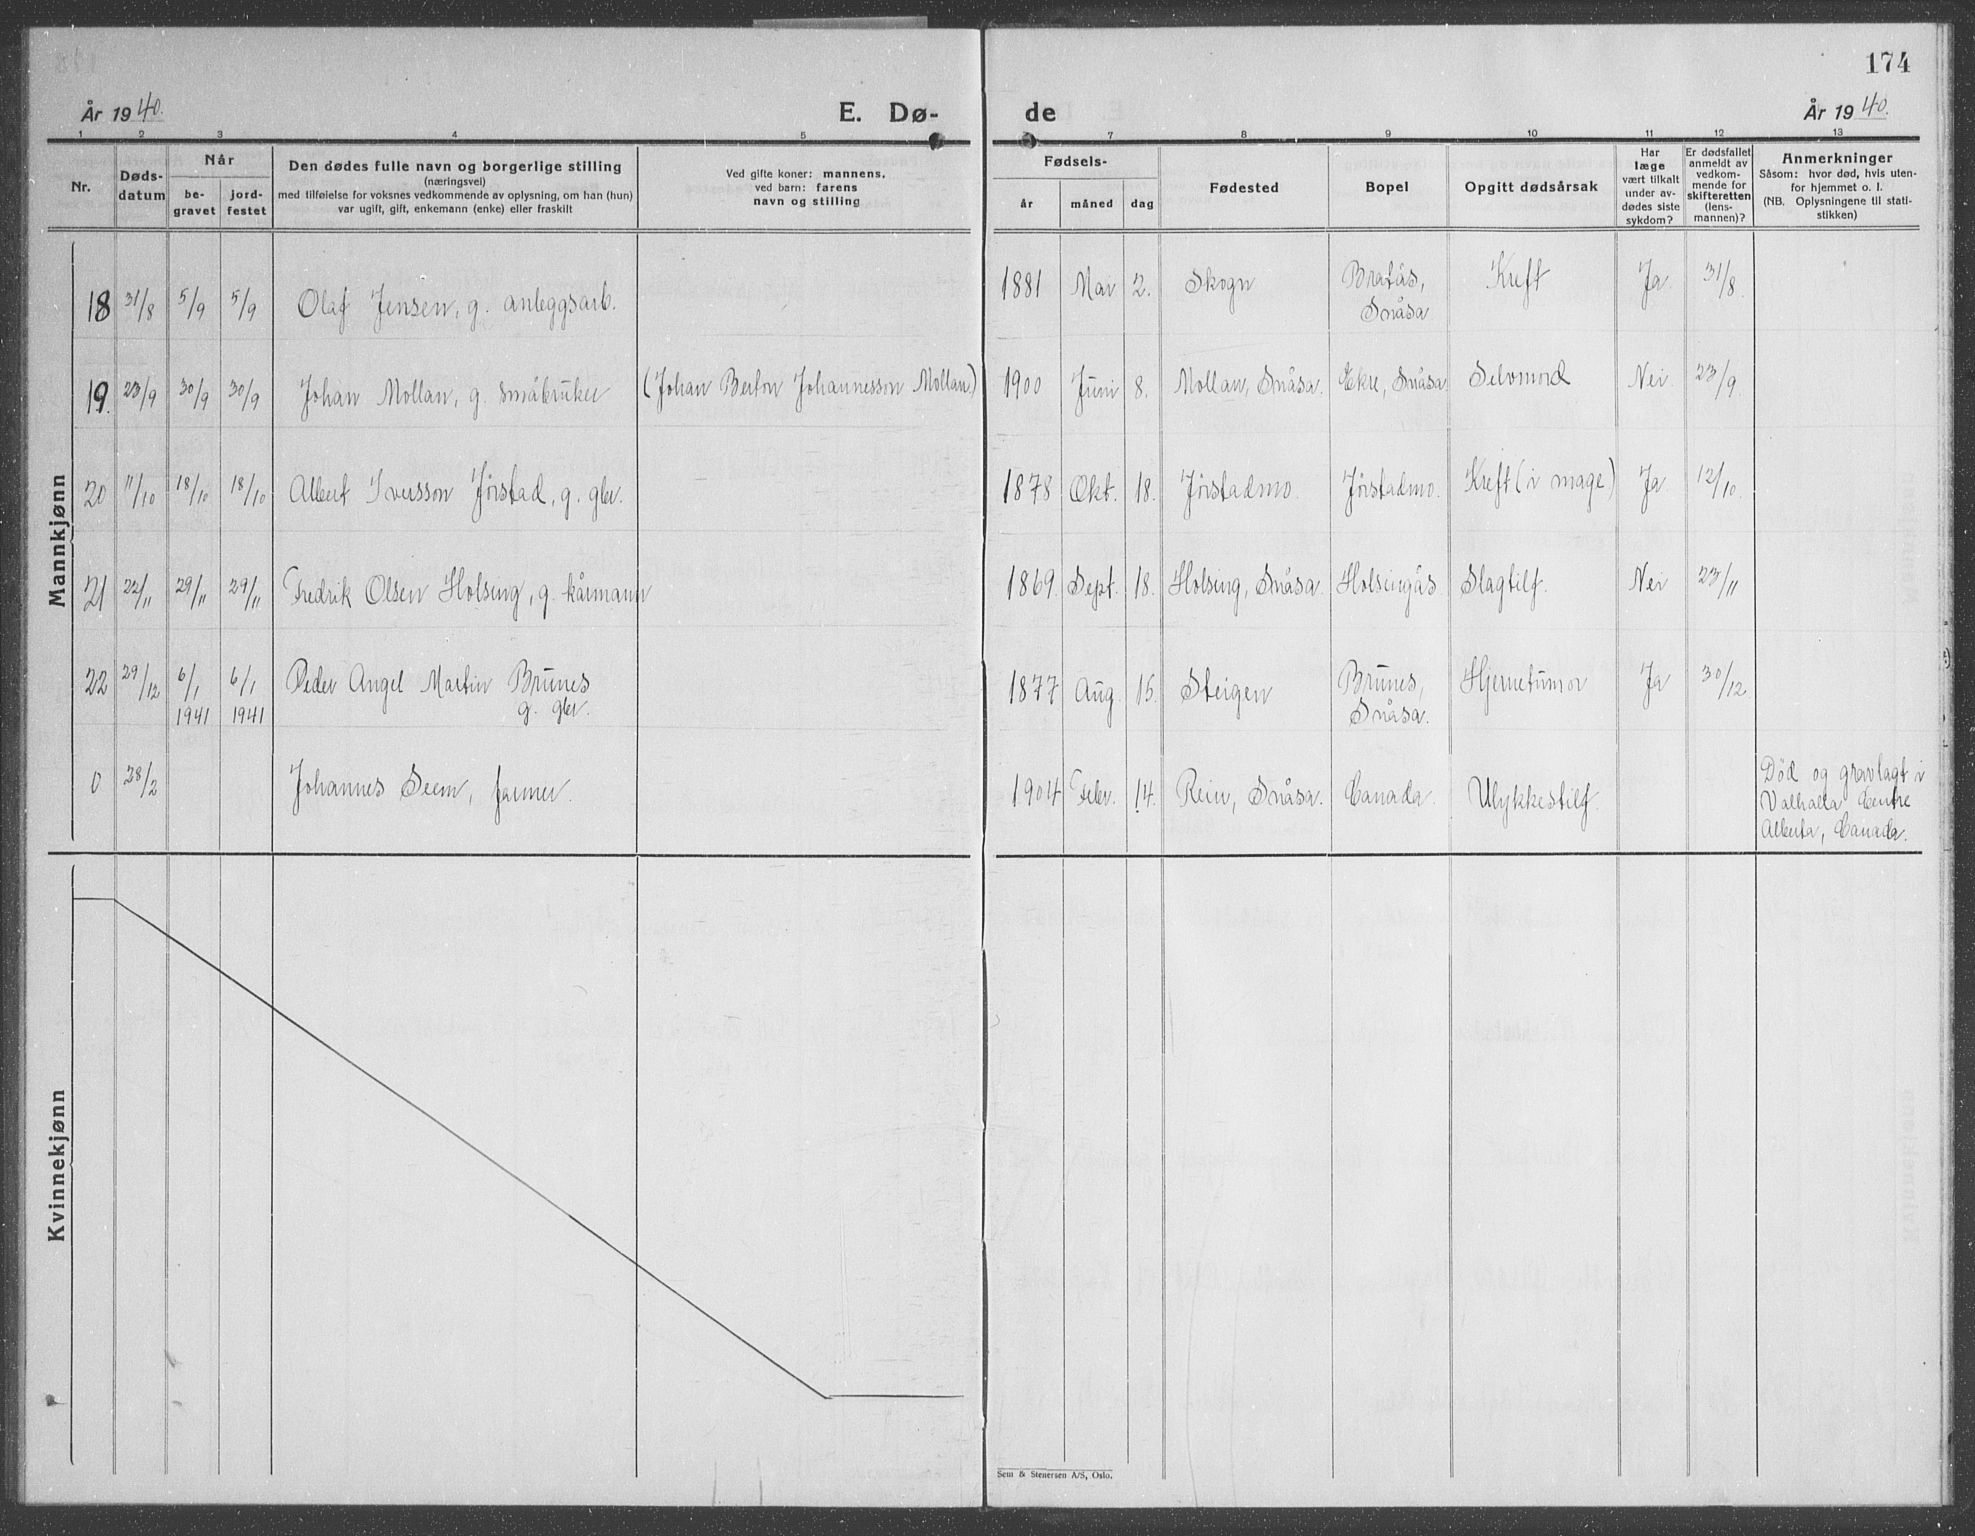 174
År 1940.
E. Dø-
de
År 1940.
1 2 3 4 5 7 8 9 10 11 12 13
Nr.
Døds-
datum
Når
be-
gravet
jord-
festet
Den dødes fulle navn og borgerlige stilling
(næringsvei)
med tilføielse for voksnes vedkommende av oplysning, om han (hun)
var ugift, gift, enkemann (enke) eller fraskilt
Ved gifte koner: mannens,
ved barn: farens
navn og stilling
Fødsels-
år måned dag
Fødested
Bopel
Opgitt dødsårsak
Har
læge
vært tilkalt
under av-
dødes siste
sykdom?
Er dødsfallet
anmeldt av
vedkom-
mende for
skifteretten
(lens-
mannen)?
Anmerkninger
Såsom: hvor død, hvis uten-
for hjemmet o. l.
(NB. Oplysningene til stati-
stikken)
Mannkjønn
18 31/8 5/9 5/9 Olaf Jensen, g. anleggsarb. 1881 Mai 2. Skogn Bratås, Kreft Ja 31/8.
Snåsa
19. 23/9 30/9 30/9 Johan Mollan, g. småbruker (Johan Berton Johannesson Mollan) 1900 Juni 8. Mollan, Snåsa. Ekre, Snåsa Selvmord Nei 23/9.
20 11/10 18/10 18/10 Albert Iversson Jørstad, g. gbr. 1878 Okt. 18. Jørstadmo. Jørstadmo. Kreft (i mage) Ja 12/10.
21 22/11 29/11 29/11 Fredrik Olsen Holsing, g. kårmann 1869 Sept. 18. Holsing, Snåsa Holsingås Slagtilf. Nei 23/11
22 29/12 6/1 6/1 Peder Angel Martin Brunes 1877 Aug. 15. Steigen Brunes, Hjernetumor Ja 30/12.
1941 1941 g. gbr. Snåsa.
0 28/2 Johannes Seem, farmer. 1904 Febr. 14. Rein, Snåsa. Canada. Ulykkestilf. Død og gravlagt i
Valhalla Centre
Alberta, Canada.
Kvinnekjønn
Sem & Stenersen A/S, Oslo.